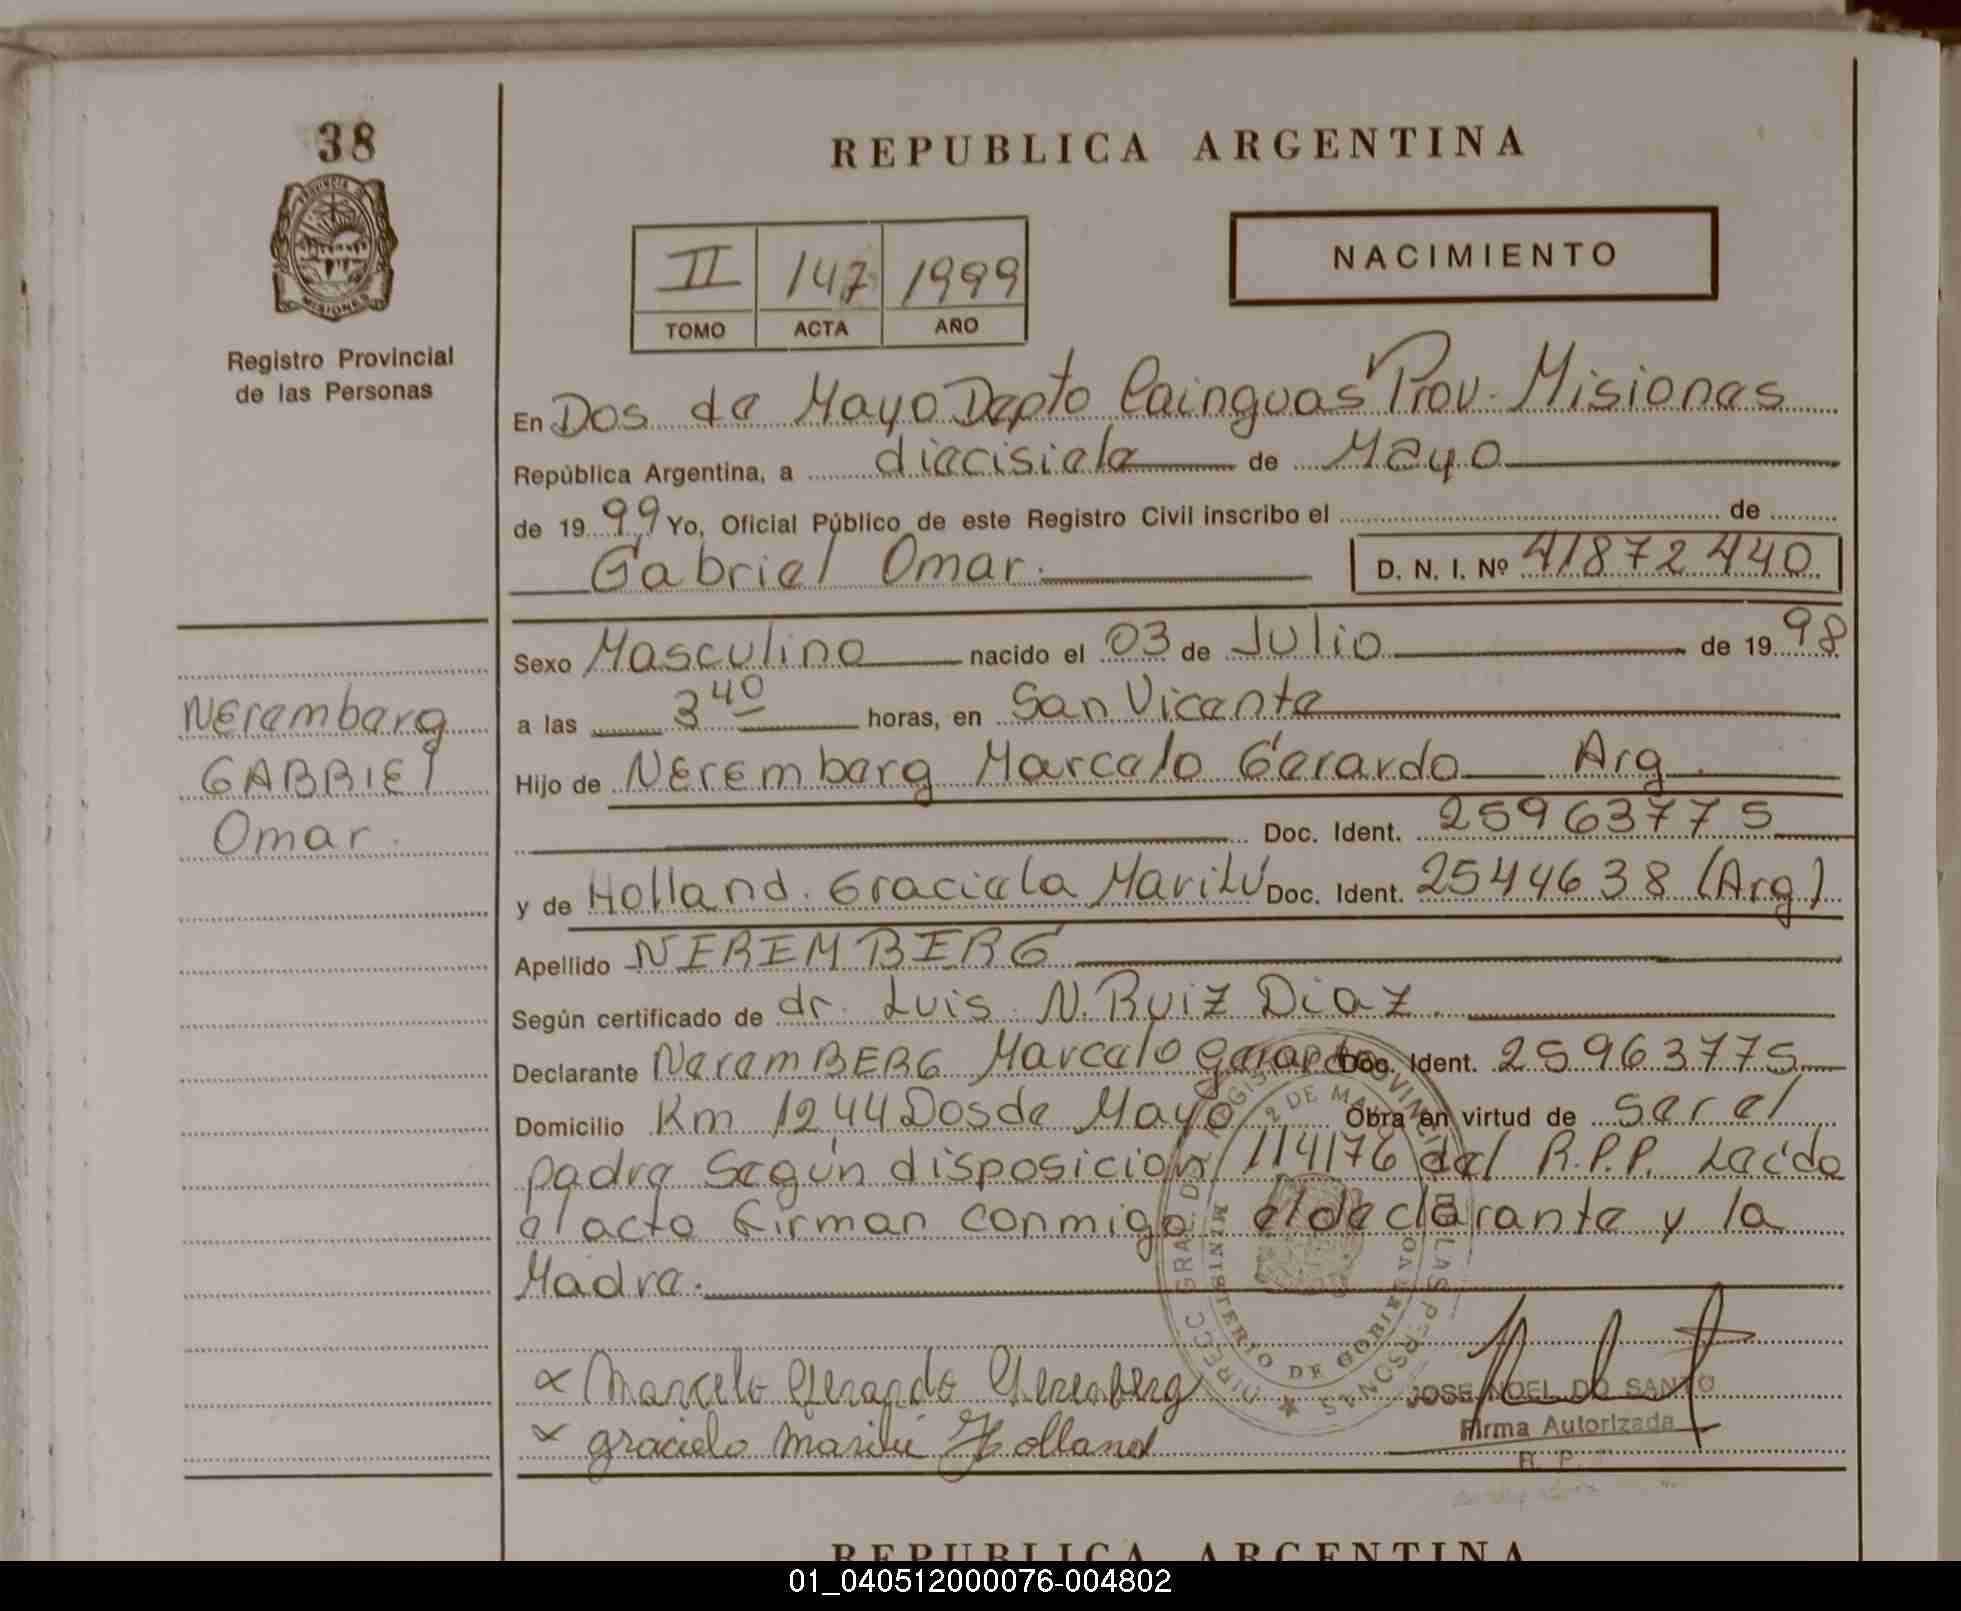 38
REPUBLICA ARGENTINA
II 147 1999
TOMO ACTA AÑO
NACIMIENTO
PROVINCIA DE MISIONES
Registro Provincial
de las Personas
En Dos de Mayo Depto Cainguas Prov. Misiones
República Argentina, a diecisiete de Mayo
de 1999 Yo, Oficial Público de este Registro Civil inscribo el de
Gabriel Omar. D. N. I. Nº 41872440
Sexo Masculino nacido el 03 de Julio de 1998
Neremberg
GABRIEL
Omar.
a las 3 40 horas, en San Vicente
Hijo de Neremberg Marcelo Gerardo Arg.
Doc. Ident. 25963775
y de Holland. Graciela Marilú Doc. Ident. 25444638 (Arg)
Apellido NEREMBERG
Según certificado de dr. Luis N. Ruiz Diaz.
Declarante NeremBERG Marcelo Gerardo Doc. Ident. 25963775
Domicilio Km 1244 Dos de Mayo Obra en virtud de ser el
padre Según disposición 114176 del R.P.P. Leída
el acta firman conmigo el declarante y la
Madre.
MINISTERIO DE GOBIERNO
2 DE MAYO
x Marcelo Gerardo Neremberg
x graciela marilú Holland
JOSE NOEL DO SANTO
Firma Autorizada
R. P.
REPUBLICA ARGENTINA
01_040512000076-004802